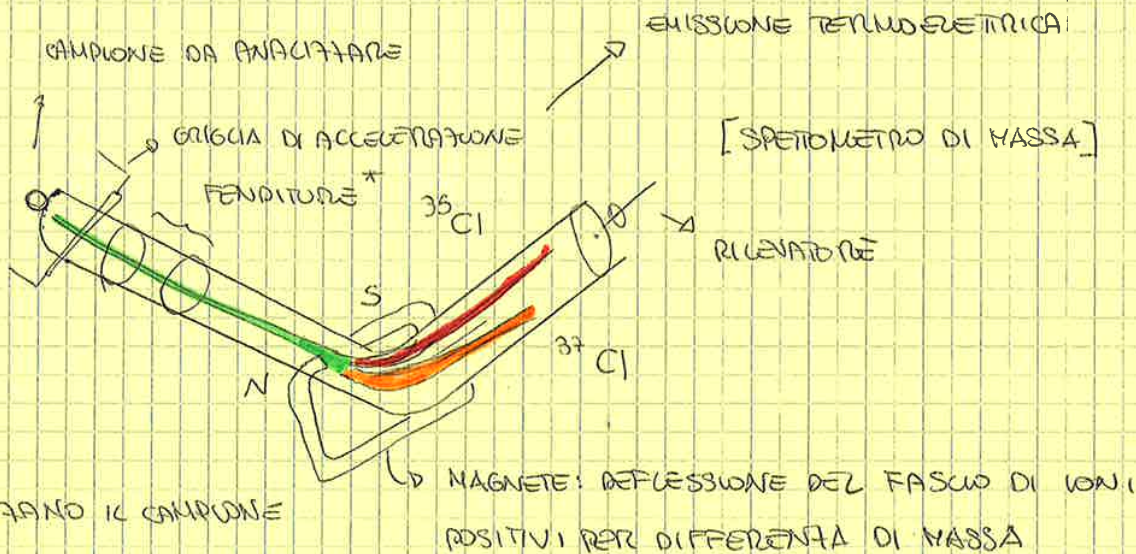 EMISSIONE TERMOELETTRICA
CAMPIONE DA ANALIZZARE
GRIGLIA DI ACCELERAZIONE
[SPETTOMETRO DI MASSA]
FENDITURE*
35Cl
RILEVATORE
S
37Cl
N
MAGNETE: DEFLESSIONE DEL FASCIO DI IONI
ZANO IL CAMPIONE
POSITIVI PER DIFFERENZA DI MASSA